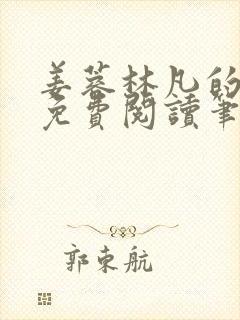 姜暮林凡的
免費閱讀筆
郭東航